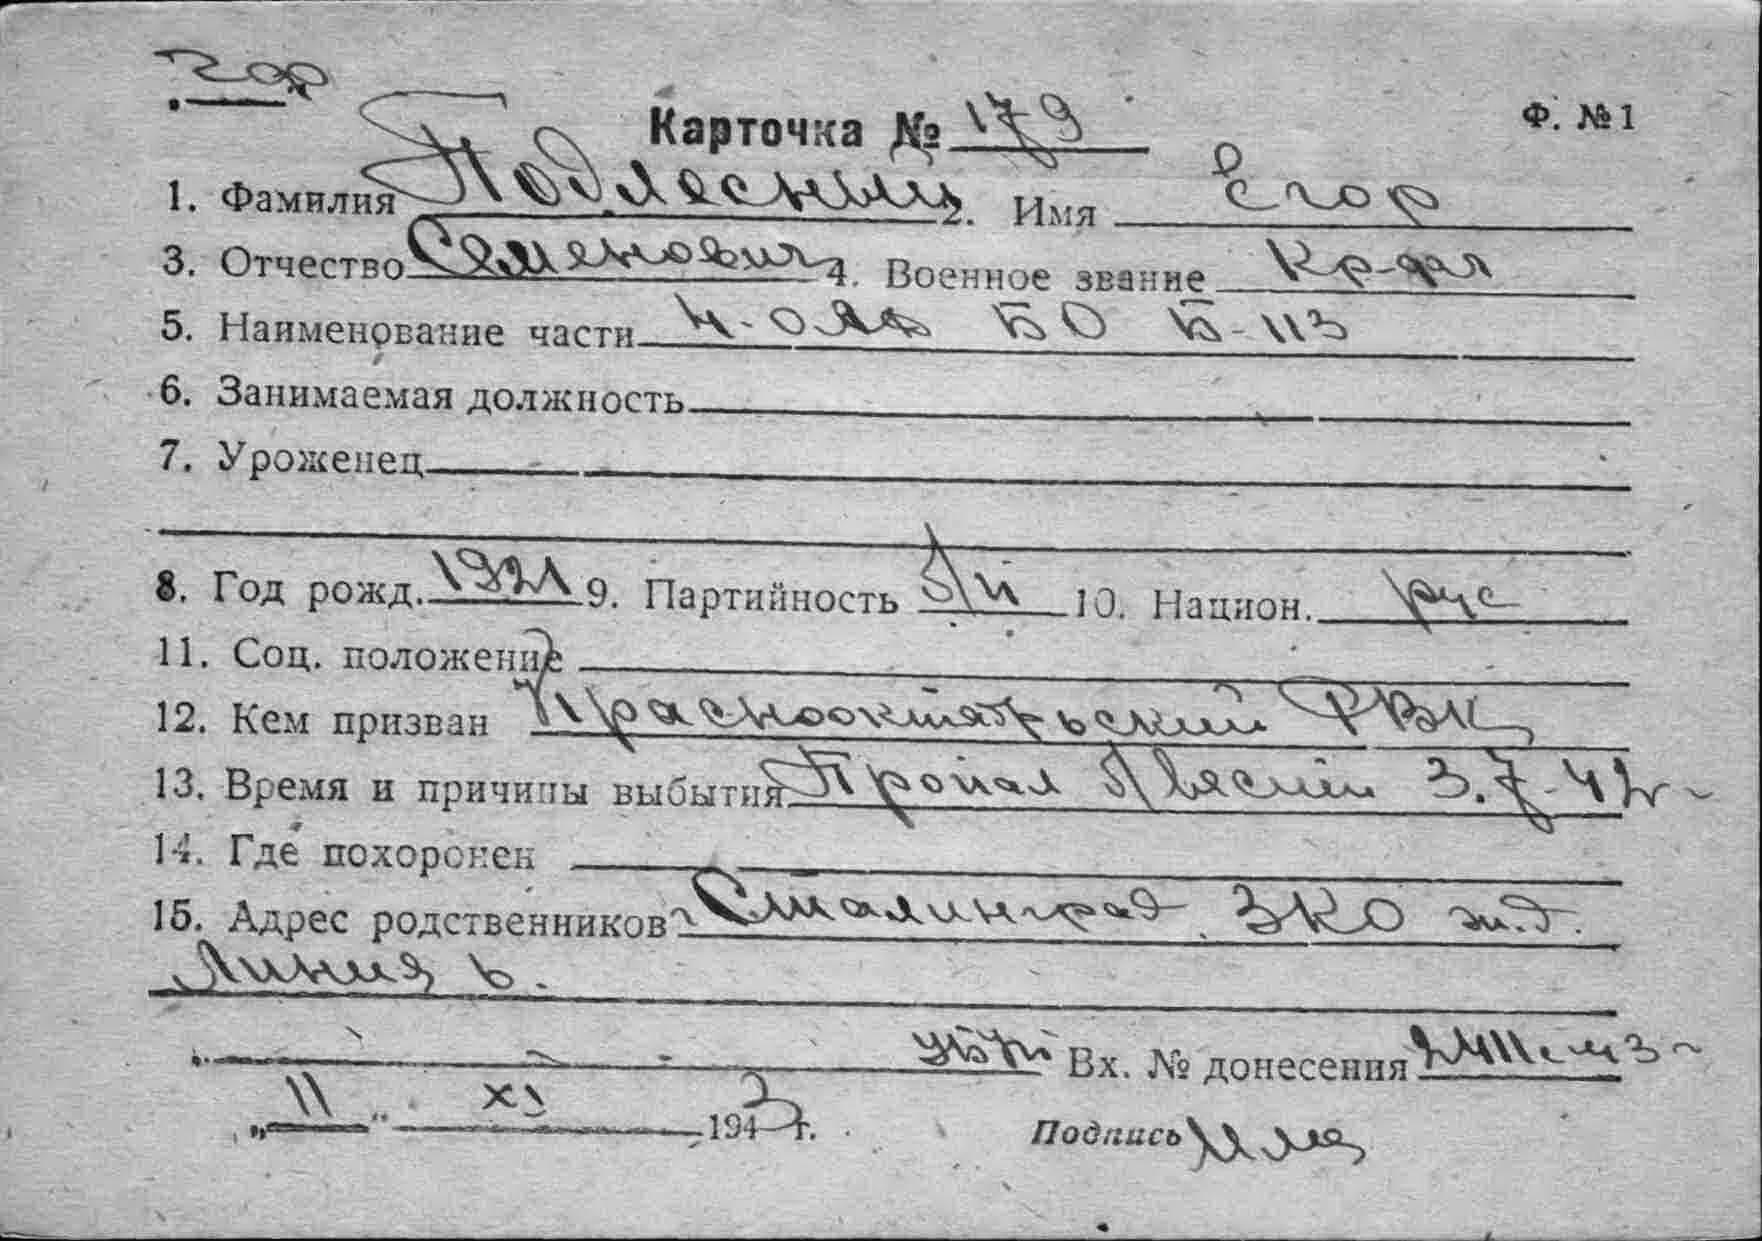 Карточка № 179 Ф. №1
1. Фамилия Подлесный 2. Имя Егор
3. Отчество Семенович 4. Военное звание Кр-фл
5. Наименование части БО Б-113
6. Занимаемая должность
7. Уроженец
8. Год рожд. 1921 9. Партийность б/п 10. Национ. рус
11. Соц. положение
12. Кем призван Краснооктябрьский РВК
13. Время и причины выбытия Пропал б/вести 3.7-42г
14. Где похоронен
15. Адрес родственников г Сталинград ЗКО ж.д.
Линия 6.
Вх. № донесения
„11“ XI 1943г.
Подпись